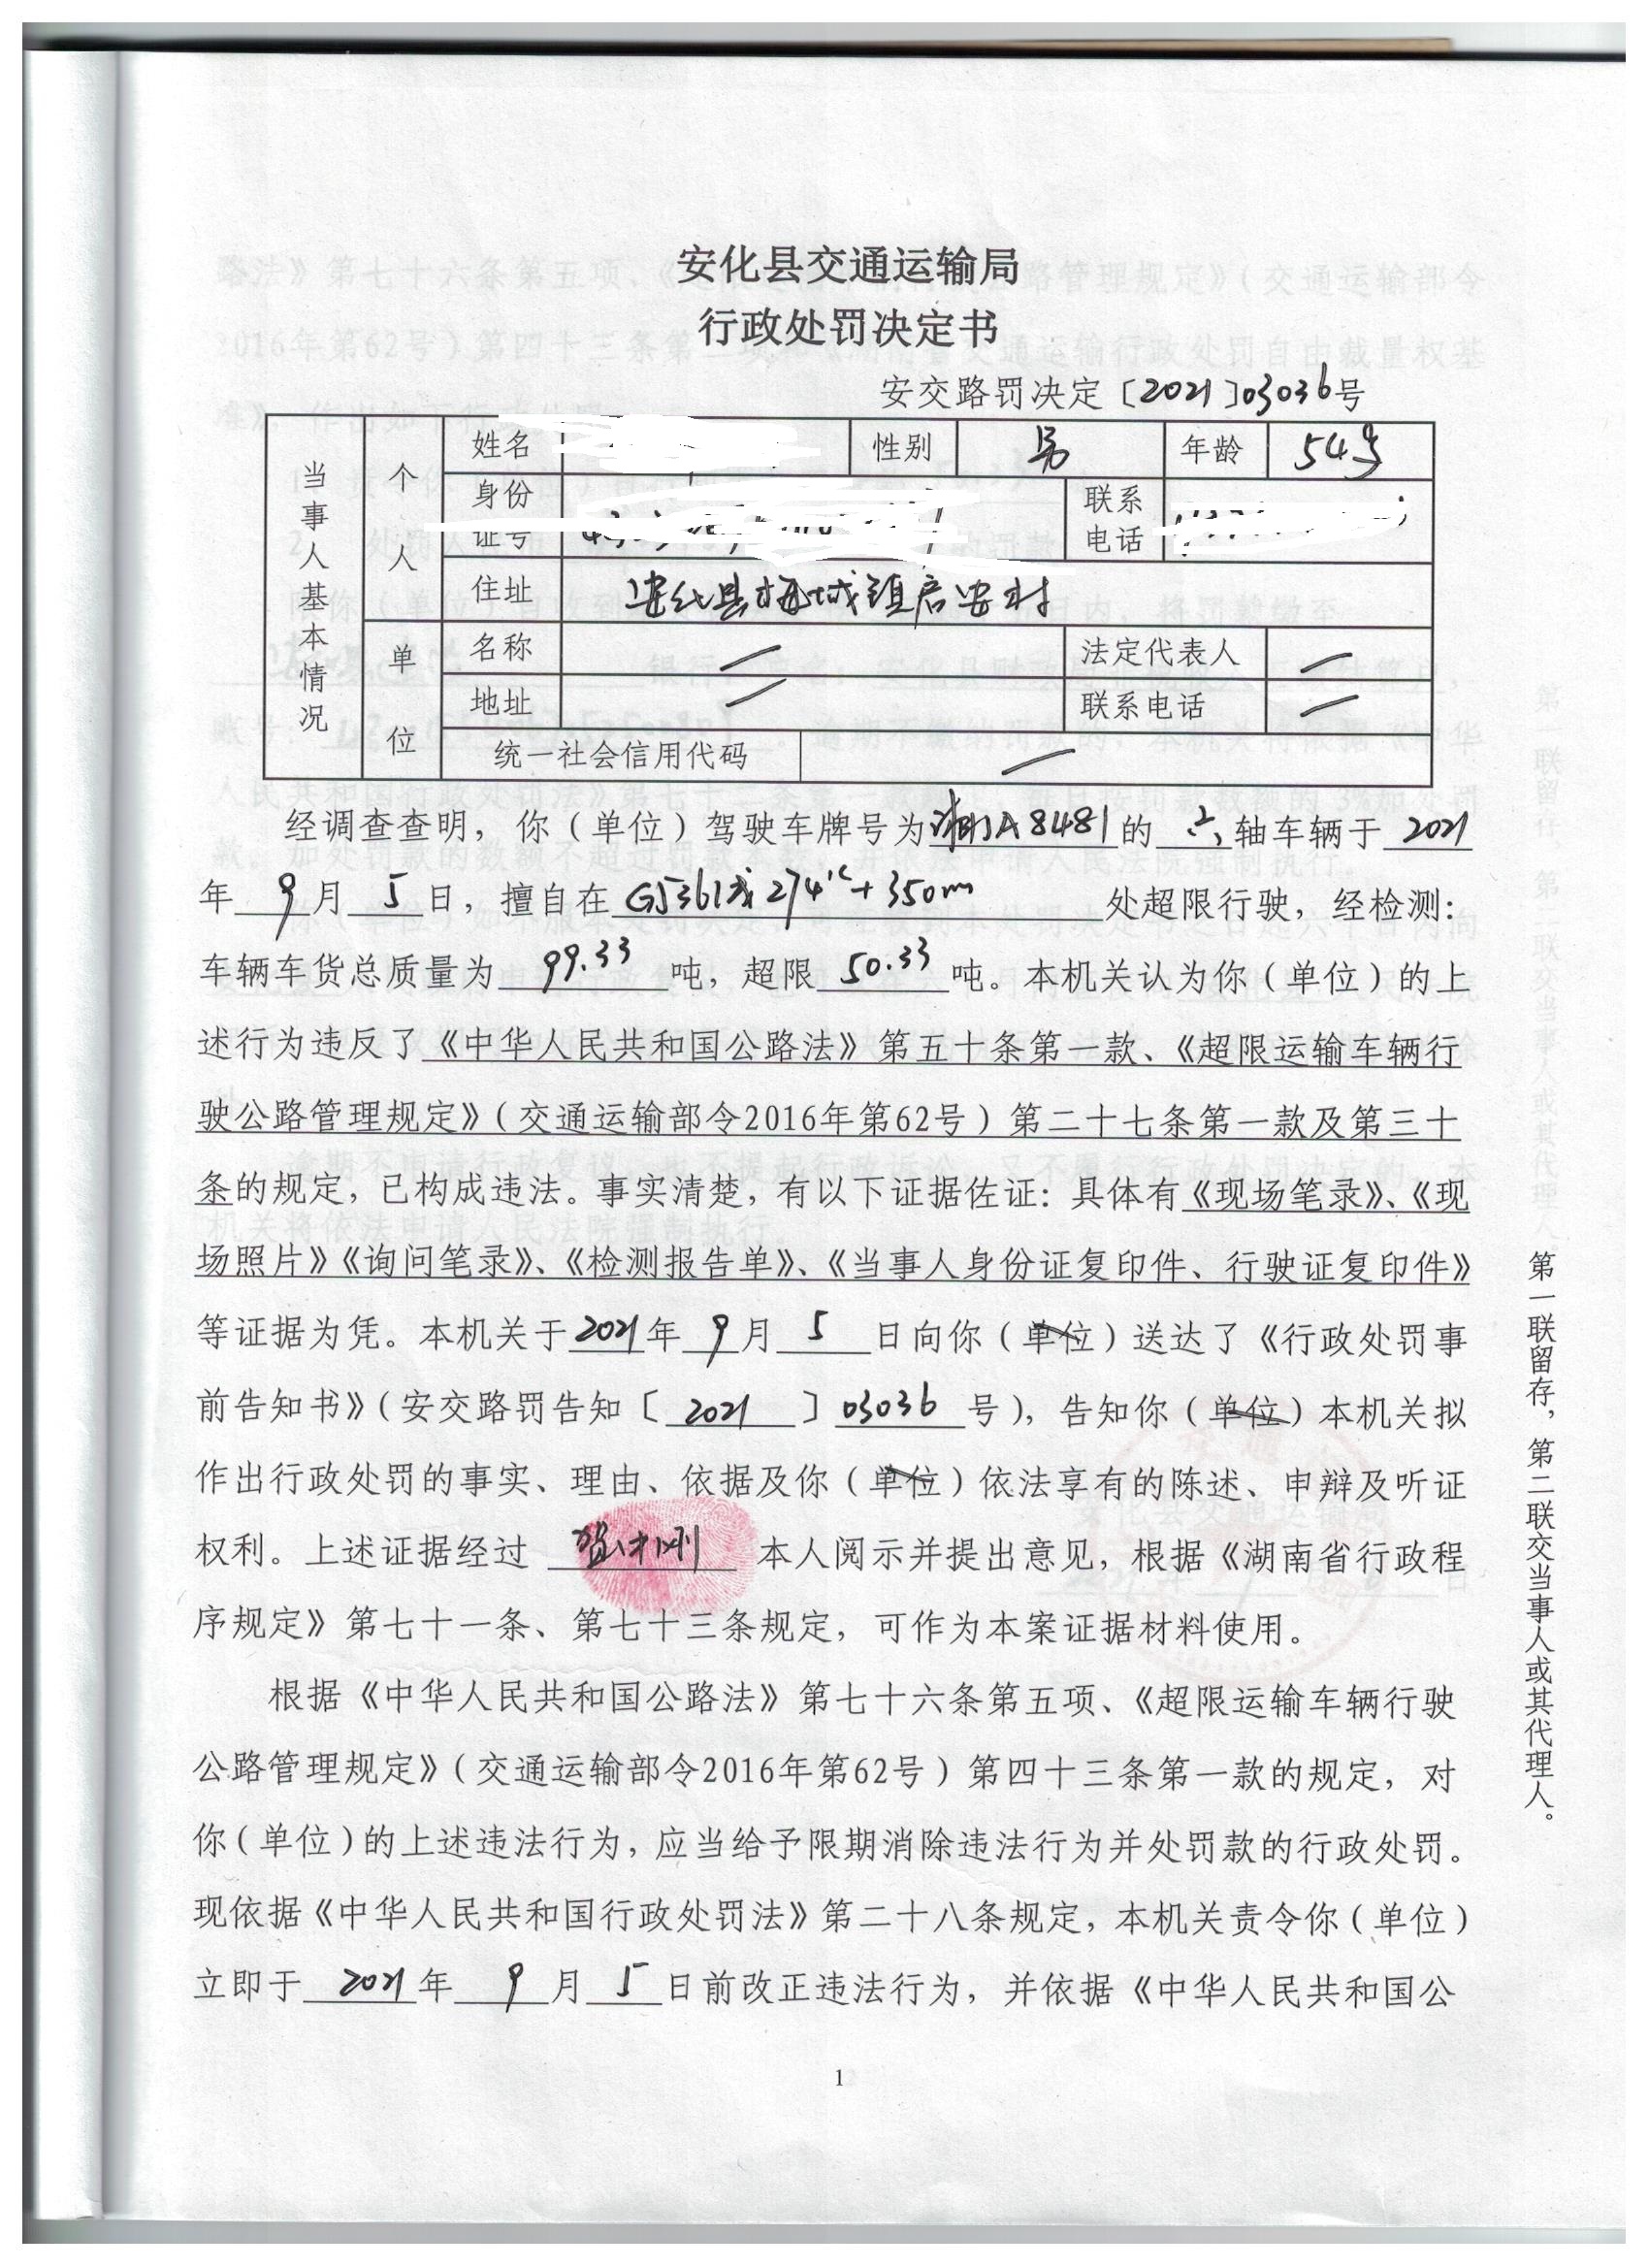 安化县交通运输局
行政处罚决定书
安交路罚决定〔2021〕03036号
当事人基本情况
个人
姓名 性别 男 年龄 54岁
身份证号 联系电话
住址 安化县梅城镇启安村
单位
名称 一 法定代表人 一
地址 一 联系电话 一
统一社会信用代码 一
经调查查明，你（单位）驾驶车牌号为湘A8481的 六 轴车辆于 2021
年 9 月 5 日，擅自在 G536线274K+350m 处超限行驶，经检测：
车辆车货总质量为 99.33 吨，超限 50.33 吨。本机关认为你（单位）的上
述行为违反了《中华人民共和国公路法》第五十条第一款、《超限运输车辆行
驶公路管理规定》（交通运输部令2016年第62号）第二十七条第一款及第三十
条的规定，已构成违法。事实清楚，有以下证据佐证：具体有《现场笔录》、《现
场照片》《询问笔录》、《检测报告单》、《当事人身份证复印件、行驶证复印件》
等证据为凭。本机关于 2021 年 9 月 5 日向你（单位）送达了《行政处罚事
前告知书》（安交路罚告知〔 2021 〕 03036 号），告知你（单位）本机关拟
作出行政处罚的事实、理由、依据及你（单位）依法享有的陈述、申辩及听证
权利。上述证据经过 本人阅示并提出意见，根据《湖南省行政程
序规定》第七十一条、第七十三条规定，可作为本案证据材料使用。
根据《中华人民共和国公路法》第七十六条第五项、《超限运输车辆行驶
公路管理规定》（交通运输部令2016年第62号）第四十三条第一款的规定，对
你（单位）的上述违法行为，应当给予限期消除违法行为并处罚款的行政处罚。
现依据《中华人民共和国行政处罚法》第二十八条规定，本机关责令你（单位）
立即于 2021 年 9 月 5 日前改正违法行为，并依据《中华人民共和国公
1
第一联留存，第二联交当事人或其代理人。